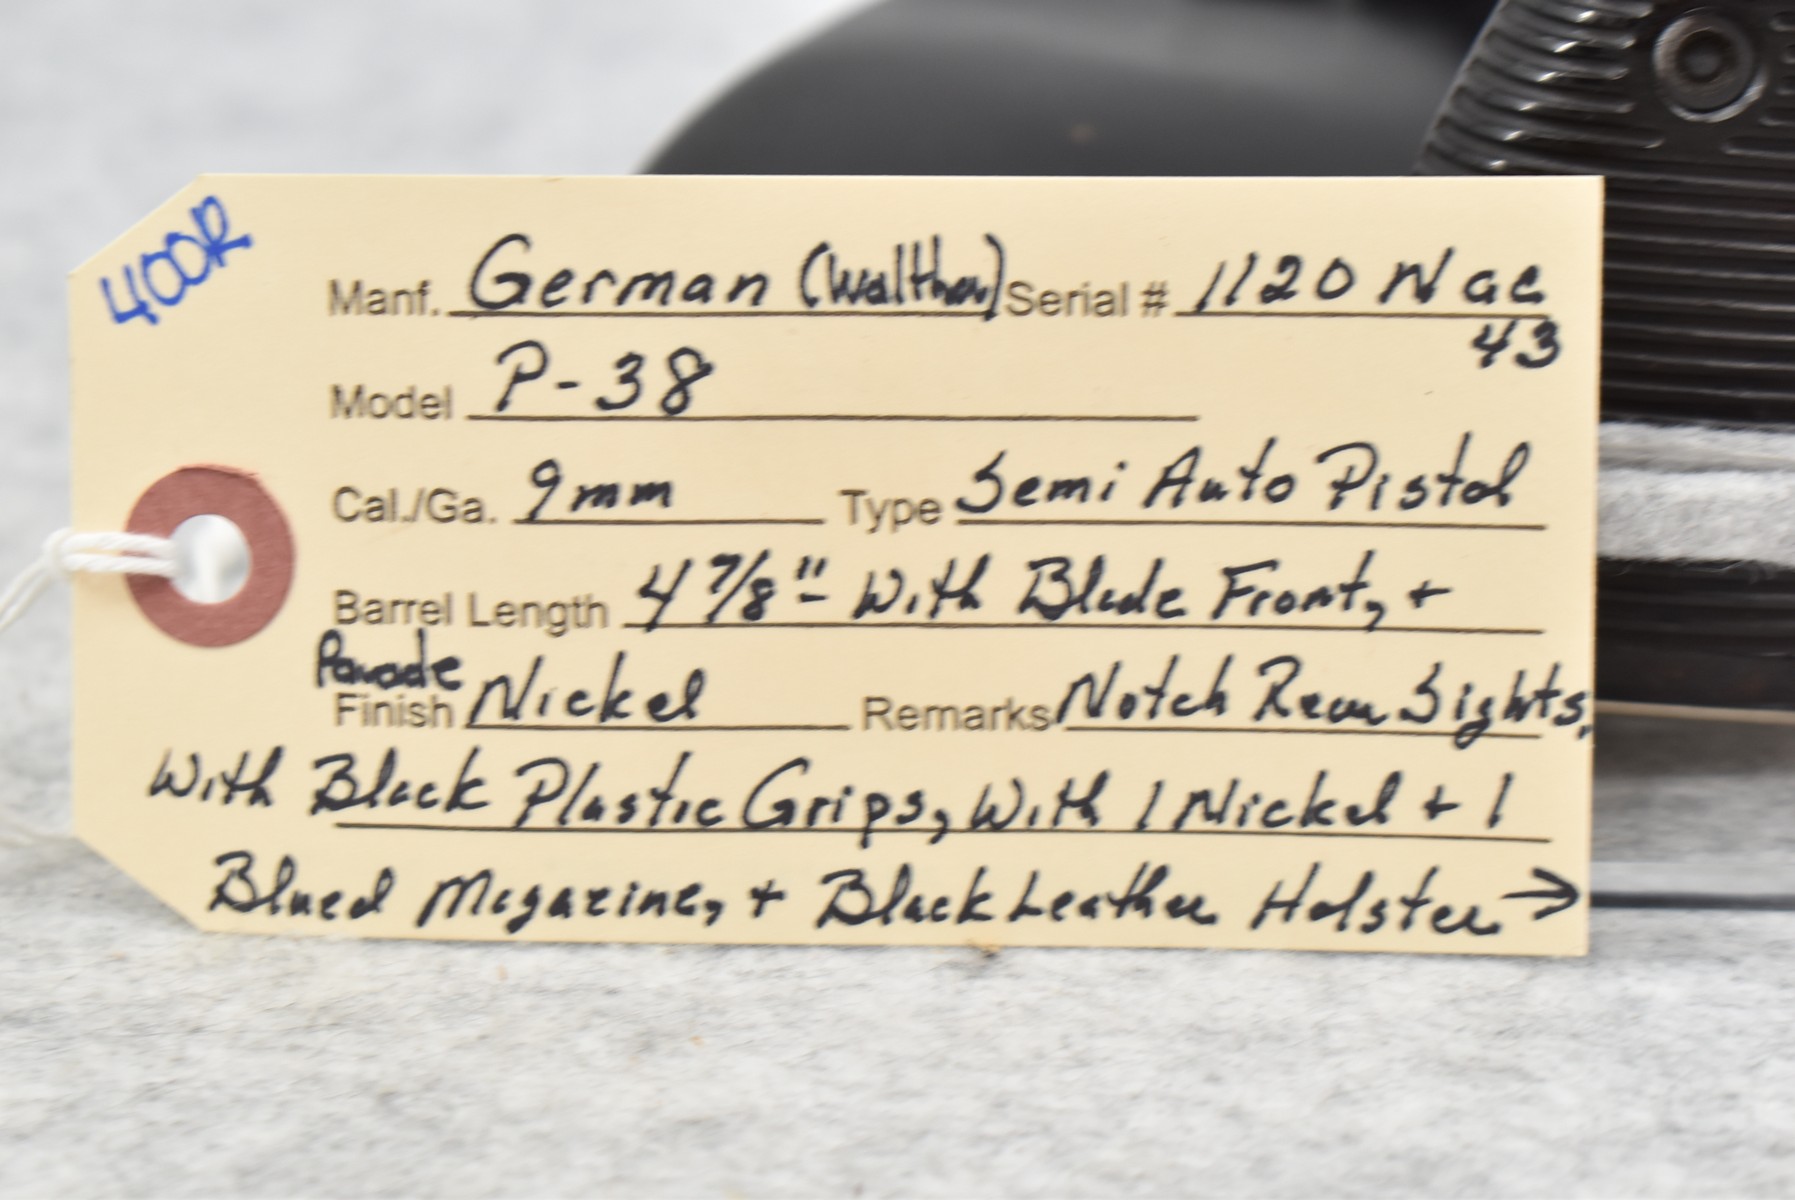 400R
Manf. German (Walther) Serial # 1120 N ac
43
Model P-38
Cal./Ga. 9mm Type Semi Auto Pistol
Barrel Length 4 7/8" With Blade Front, +
Parade
Finish Nickel Remarks Notch Rear Sights,
With Black Plastic Grips, With 1 Nickel + 1
Blued Magazine, + Black Leather Holster →